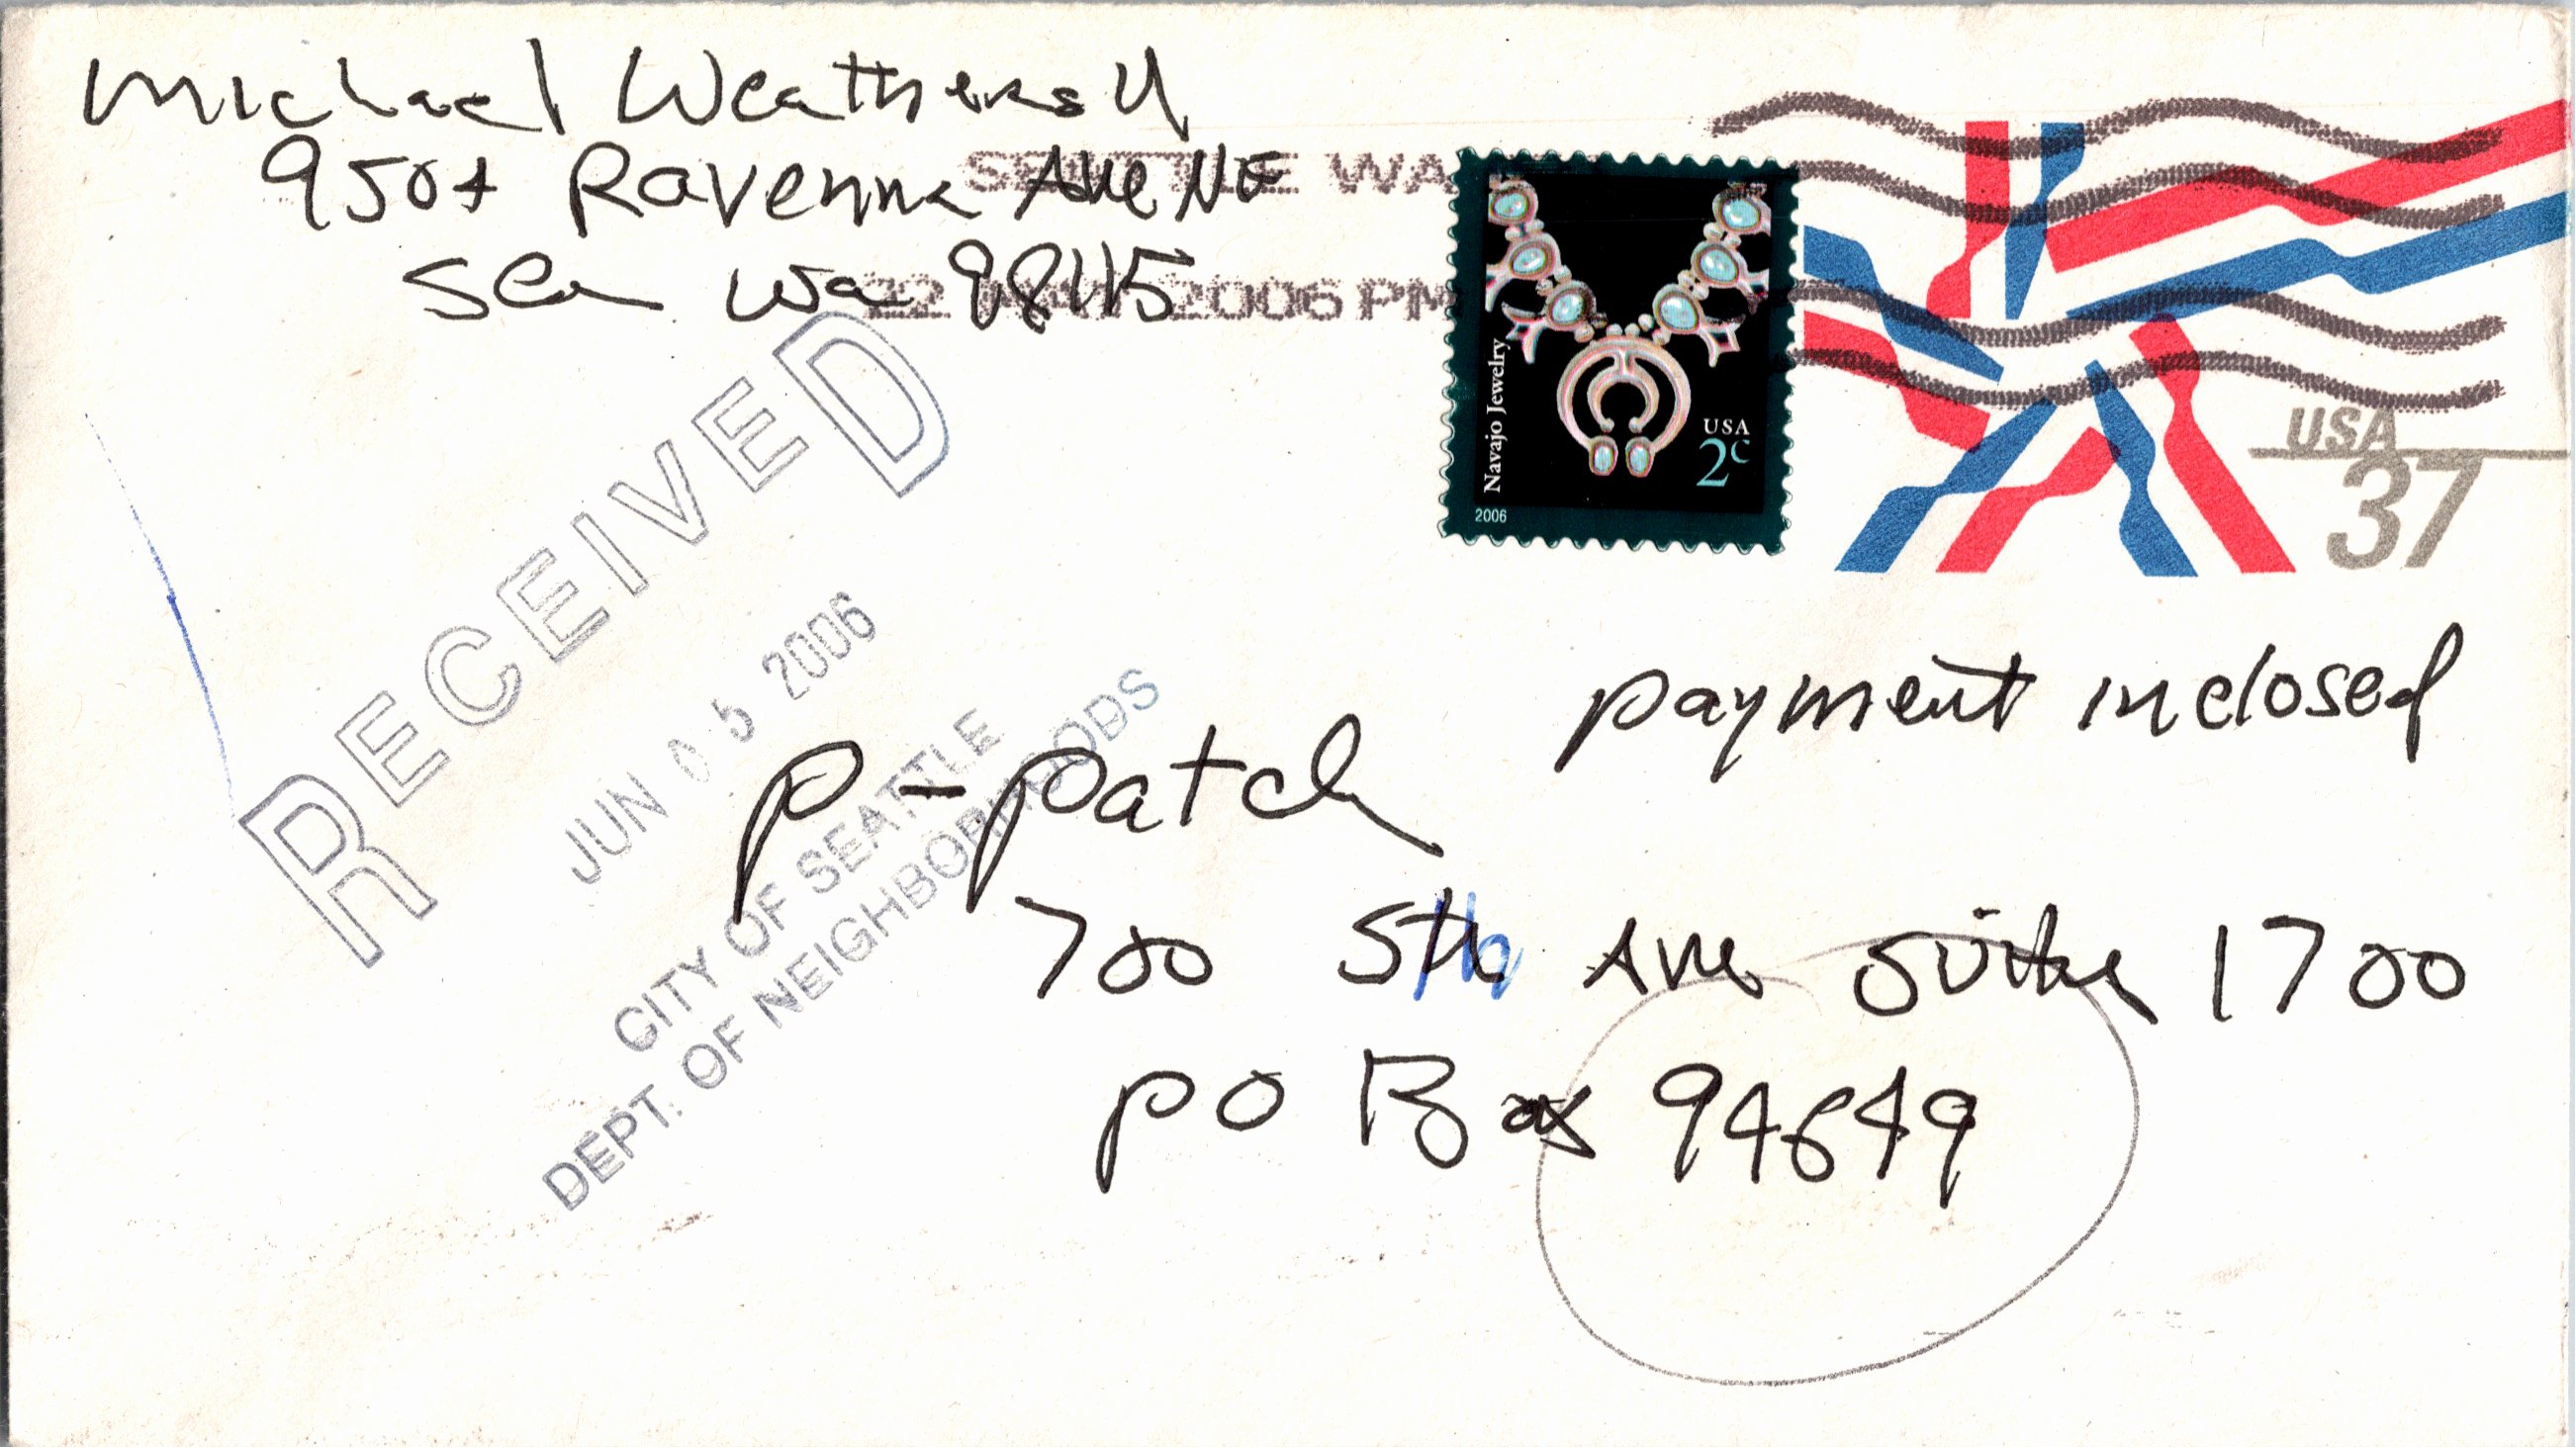 Michael Weathersll
9504 Ravenna Ave NE
Sea Wa 98115
SEATTLE WA
22 2006 PM
Navajo Jewelry
USA
2c
2006
USA
37
RECEIVED
JUN 05 2006
CITY OF SEATTLE
DEPT. OF NEIGHBORHOODS
payment inclosed
P-patch
700 5th Ave Suite 1700
PO Box 94649